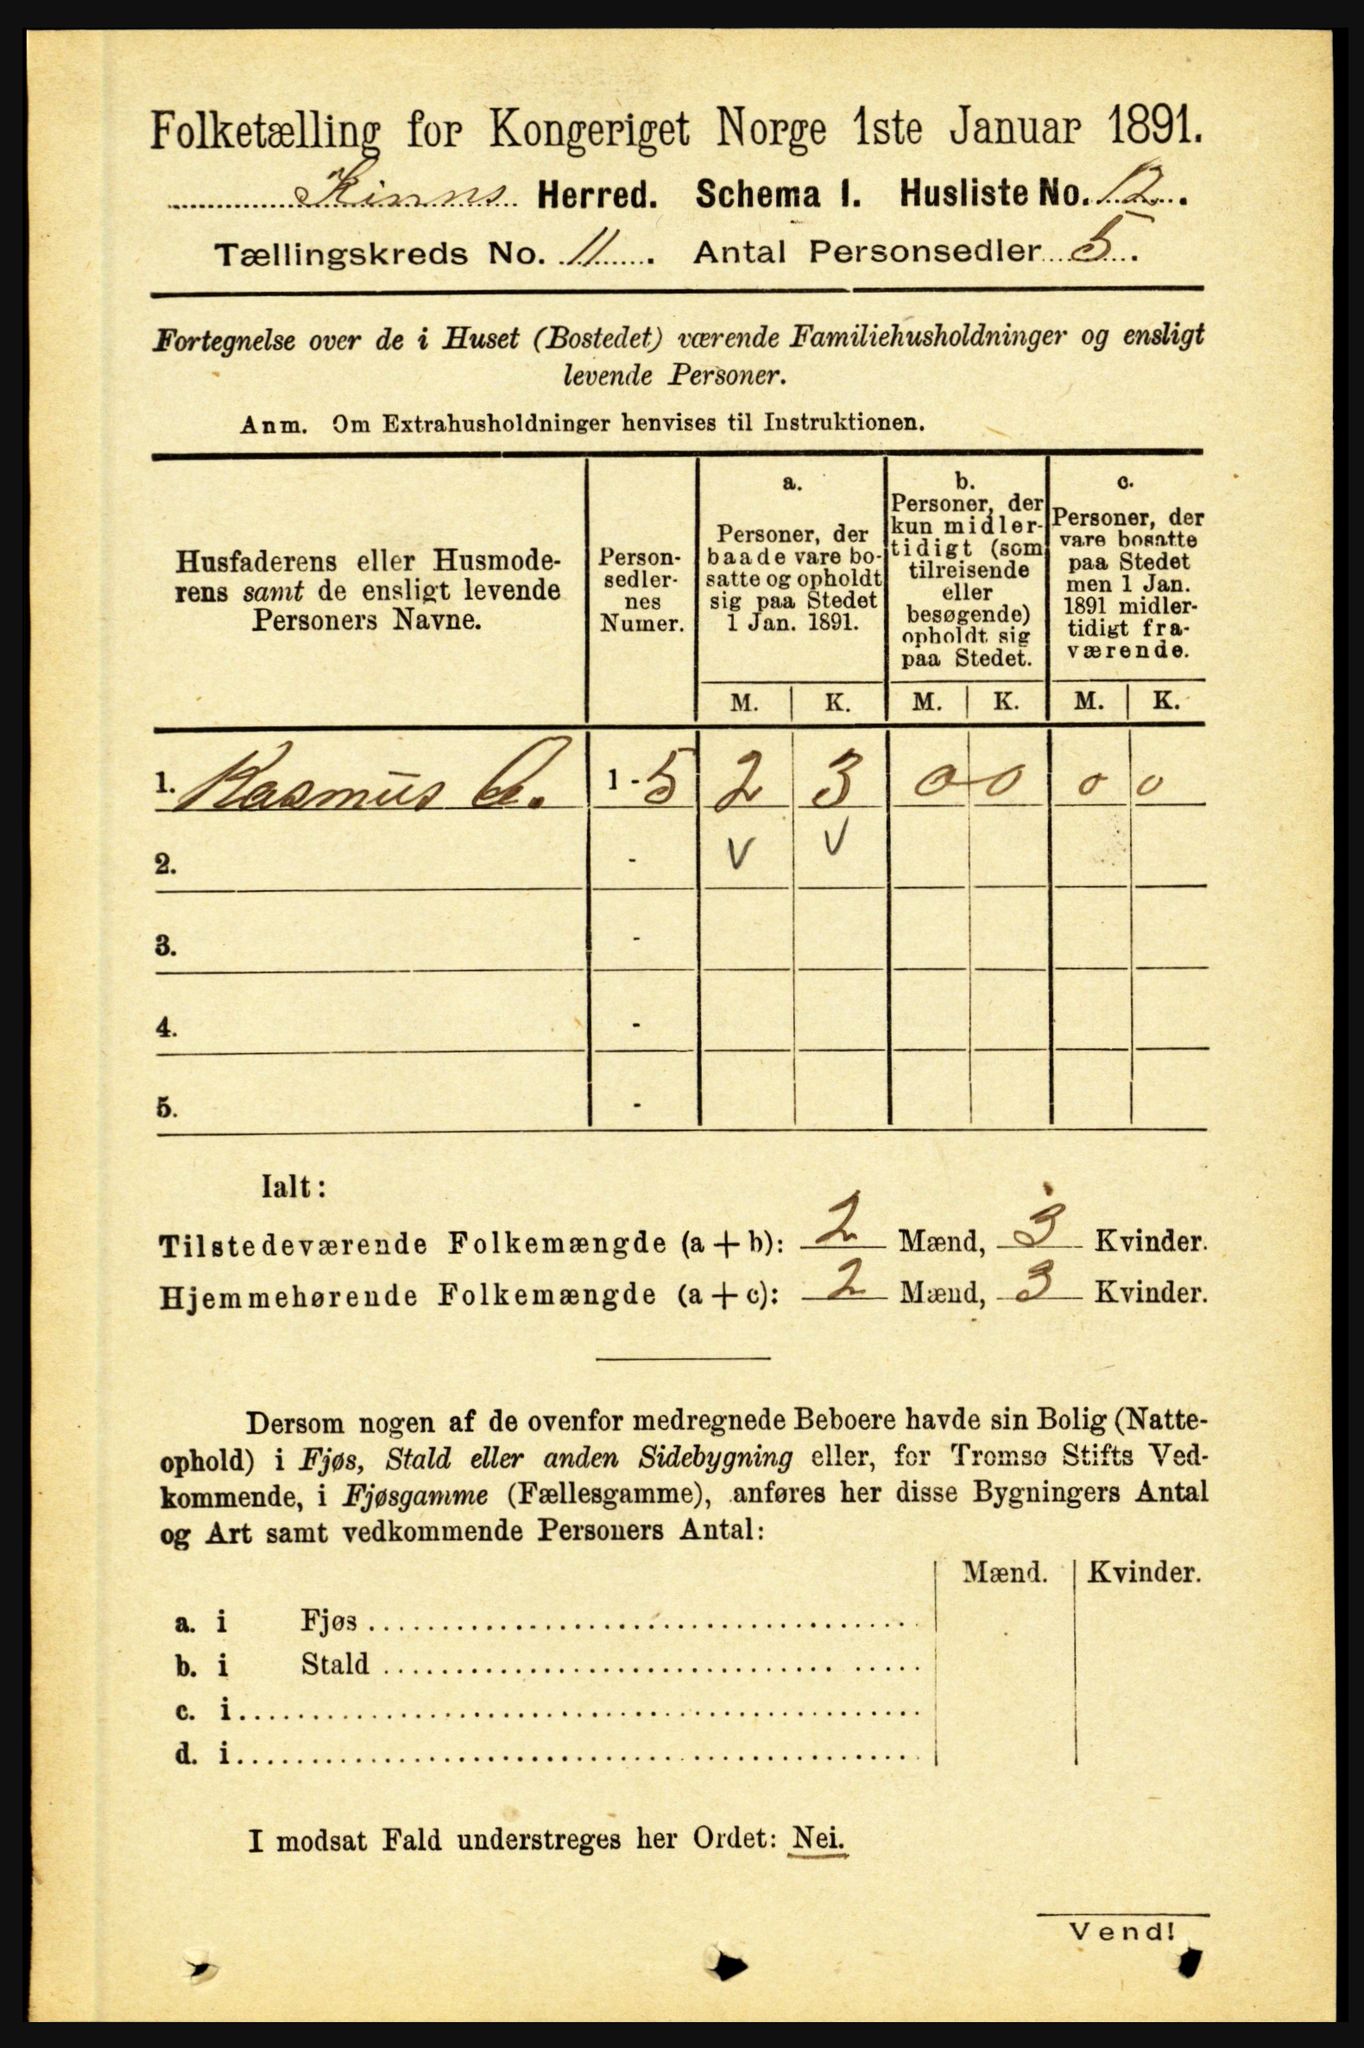 Folketælling for Kongeriget Norge 1ste Januar 1891.
Kinns Herred. Schema I. Husliste No. 12.
Tællingskreds No. 11. Antal Personsedler 5.
Fortegnelse over de i Huset (Bostedet) værende Familiehusholdninger og ensligt
levende Personer.
Anm. Om Extrahusholdninger henvises til Instruktionen.
Husfaderens eller Husmode-
rens samt de ensligt levende
Personers Navne.
Person-
sedler-
nes
Numer.
a.
Personer, der
baade vare bo-
satte og opholdt
sig paa Stedet
1 Jan. 1891.
b.
Personer, der
kun midler-
tidigt (som
tilreisende
eller
besøgende)
opholdt sig
paa Stedet.
c.
Personer, der
vare bosatte
paa Stedet
men 1 Jan.
1891 midler-
tidigt fra-
værende.
M. K. M. K. M. K.
1. Rasmus A. 1 - 5 2 3 0 0 0 0
2. - v v
3. -
4. -
5. -
Ialt:
Tilstedeværende Folkemængde (a + b): 2 Mænd, 3 Kvinder.
Hjemmehørende Folkemængde (a + c): 2 Mænd, 3 Kvinder.
Dersom nogen af de ovenfor medregnede Beboere havde sin Bolig (Natte-
ophold) i Fjøs, Stald eller anden Sidebygning eller, for Tromsø Stifts Ved-
kommende, i Fjøsgamme (Fællesgamme), anføres her disse Bygningers Antal
og Art samt vedkommende Personers Antal:
Mænd. Kvinder.
a. i Fjøs
b. i Stald
c. i
d. i
I modsat Fald understreges her Ordet: Nei.
Vend!